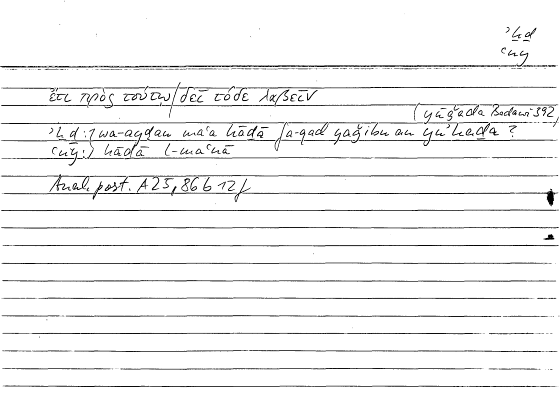 ʾḫḏ
ʿny
ἔτι πρὸς τούτῳ / δεῖ τόδε λαβεῖν
(yūǧada Badawī 392,
ʾḫḏ : } wa-ayḍan maʿa hāḏā fa-qad yaǧibu an yuʾḫaḏa ?
ʿny : } hāḏā l-maʿnā
Anal. post. A 25, 86 b 12 f